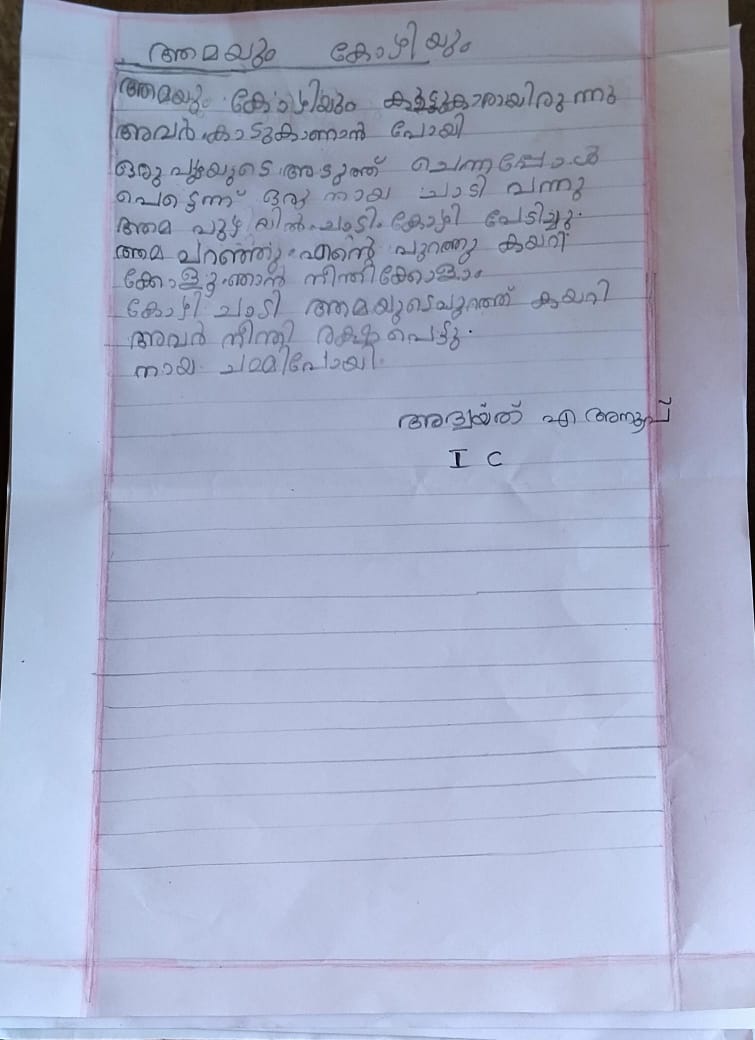 ആമയും കോഴിയും
ആമയും കോഴിയും കൂട്ടുകാരായിരുന്നു
അവർ കാടുകാണാൻ പോയി
ഒരു പുഴയുടെ അടുത്ത് ചെന്നപ്പോൾ
പെട്ടെന്ന് ഒരു നായ ചാടി വന്നു
ആമ പുഴയിൽ ചാടി. കോഴി പേടിച്ചു.
ആമ പറഞ്ഞു. എന്റെ പുറത്തു കയറി
ക്കോളു ഞാൻ നീന്തിക്കോളാം
കോഴി ചാടി ആമയുടെ പുറത്ത് കയറി
അവർ നീന്തി രക്ഷപെട്ടു.
നായ ചമ്മിപോയി.
അദ്വയ്ത് എ അനൂപ്
I C